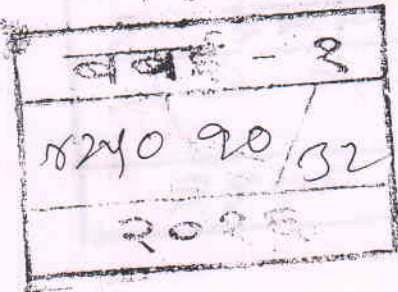 बबई - १
४२५० १० / ३२
२०१६